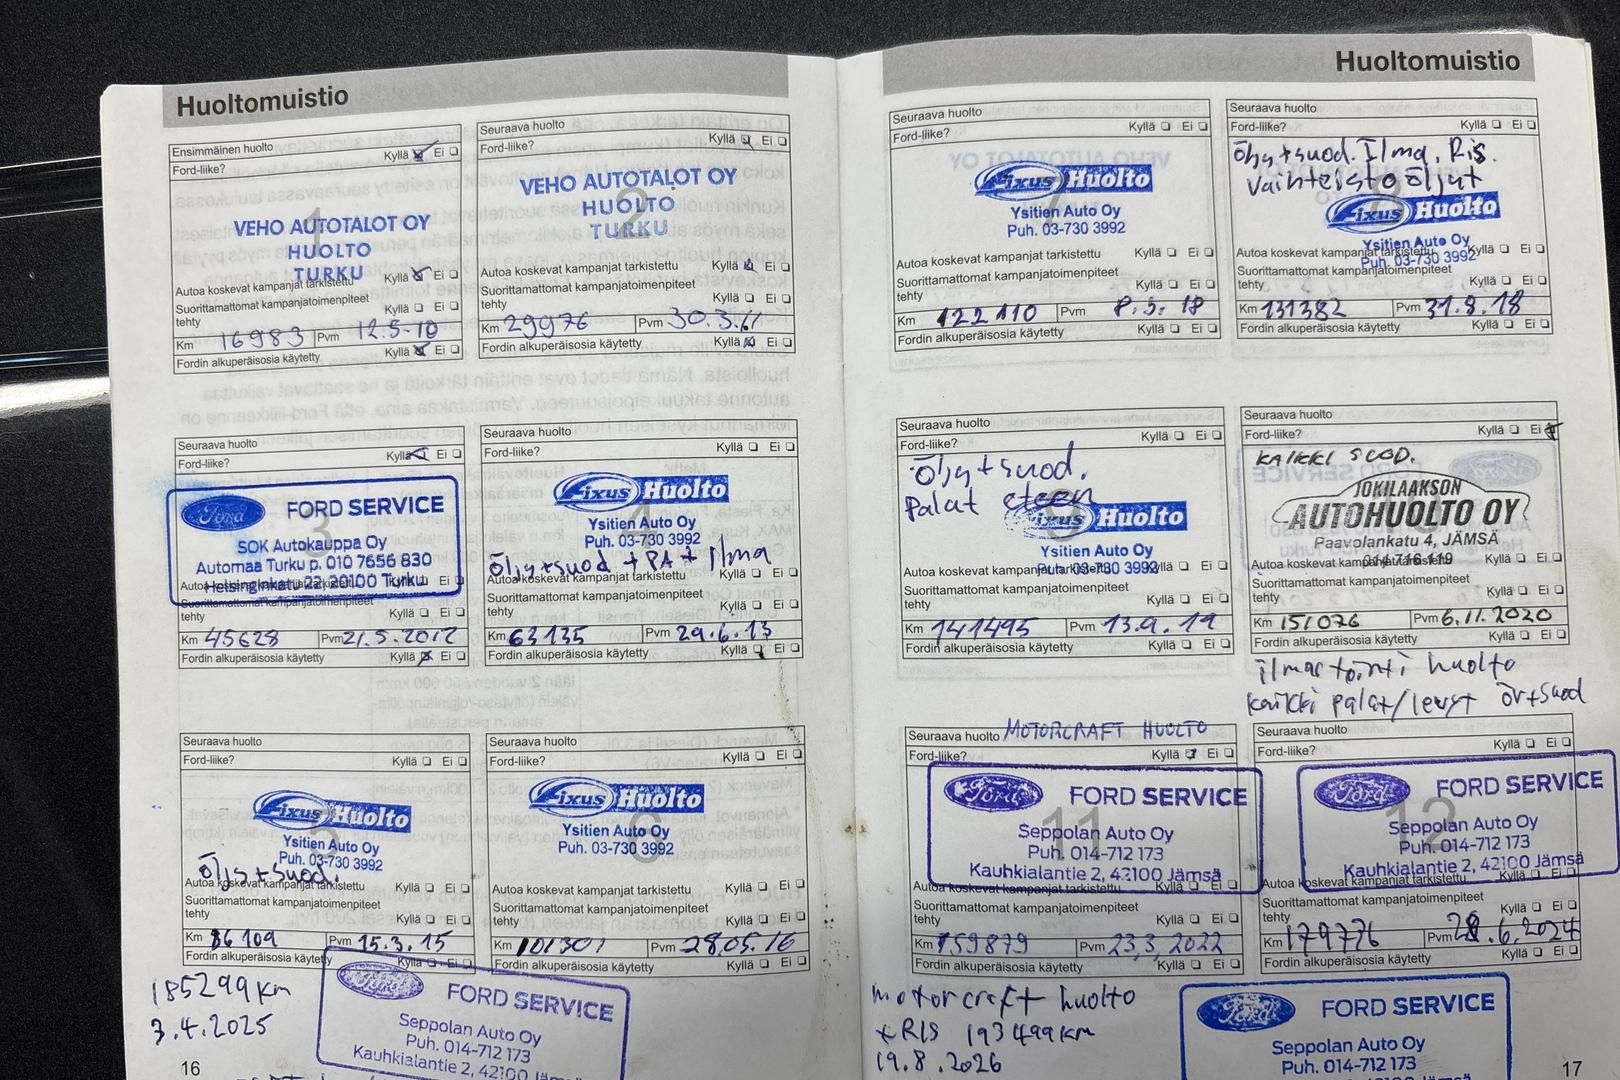 Huoltomuistio
Ensimmäinen huolto
Ford-liike? Kyllä Ei
VEHO AUTOTALOT OY
HUOLTO
TURKU
Autoa koskevat kampanjat tarkistettu Kyllä Ei
Suorittamattomat kampanjatoimenpiteet
tehty Kyllä Ei
Km 16983 Pvm 12.5-10
Fordin alkuperäisosia käytetty Kyllä Ei
Seuraava huolto
Ford-liike? Kyllä Ei
2
VEHO AUTOTALOT OY
HUOLTO
TURKU
Autoa koskevat kampanjat tarkistettu Kyllä Ei
Suorittamattomat kampanjatoimenpiteet
tehty Kyllä Ei
Km 29976 Pvm 30.3.11
Fordin alkuperäisosia käytetty Kyllä Ei
Seuraava huolto
Ford-liike? Kyllä Ei
3
Ford FORD SERVICE
SOK Autokauppa Oy
Automaa Turku p. 010 7656 830
Helsinginkatu 22, 20100 Turku
Autoa Ei
Suorittamattomat kampanjatoimenpiteet
tehty Kyllä Ei
Km 45628 Pvm 21.5.2012
Fordin alkuperäisosia käytetty Kyllä Ei
Seuraava huolto
Ford-liike? Kyllä Ei
4
Fixus Huolto
Ysitien Auto Oy
Puh. 03-730 3992
Öljy+suod + PA + Ilma
Autoa koskevat kampanjat tarkistettu Kyllä Ei
Suorittamattomat kampanjatoimenpiteet
tehty Kyllä Ei
Km 63135 Pvm 29.6.13
Fordin alkuperäisosia käytetty Kyllä Ei
Seuraava huolto
Ford-liike? Kyllä Ei
5
Fixus Huolto
Ysitien Auto Oy
Puh. 03-730 3992
Öljy+suod.
Autoa koskevat kampanjat tarkistettu Kyllä Ei
Suorittamattomat kampanjatoimenpiteet
tehty Kyllä Ei
Km 86109 Pvm 15.3.15
Fordin alkuperäisosia käytetty Kyllä Ei
Seuraava huolto
Ford-liike? Kyllä Ei
6
Fixus Huolto
Ysitien Auto Oy
Puh. 03-730 3992
Autoa koskevat kampanjat tarkistettu Kyllä Ei
Suorittamattomat kampanjatoimenpiteet
tehty Kyllä Ei
Km 101301 Pvm 28.05.16
Fordin alkuperäisosia käytetty Kyllä Ei
185299 km
3.4.2025
Ford FORD SERVICE
Seppolan Auto Oy
Puh. 014-712 173
Kauhkialantie 2, 42100 Jämsä
16
Huoltomuistio
Seuraava huolto
Ford-liike? Kyllä Ei
7
Fixus Huolto
Ysitien Auto Oy
Puh. 03-730 3992
Autoa koskevat kampanjat tarkistettu Kyllä Ei
Suorittamattomat kampanjatoimenpiteet
tehty Kyllä Ei
Km 122110 Pvm 8.3.18
Fordin alkuperäisosia käytetty Kyllä Ei
Seuraava huolto
Ford-liike? Kyllä Ei
Öljy+suod. Ilma. Ris.
Vaihteistoöljyt
Fixus Huolto
Ysitien Auto Oy
Puh. 03-730 3992
Autoa koskevat kampanjat tarkistettu Kyllä Ei
Suorittamattomat kampanjatoimenpiteet
tehty Kyllä Ei
Km 131382 Pvm 31.8.18
Fordin alkuperäisosia käytetty Kyllä Ei
Seuraava huolto
Ford-liike? Kyllä Ei
Öljy+suod.
Palat eteen
9
Fixus Huolto
Ysitien Auto Oy
Puh. 03-730 3992
Autoa koskevat kampanjat tarkistettu Kyllä Ei
Suorittamattomat kampanjatoimenpiteet
tehty Kyllä Ei
Km 141495 Pvm 13.9.19
Fordin alkuperäisosia käytetty Kyllä Ei
Seuraava huolto
Ford-liike? Kyllä Ei
KAIKKI SUOD.
JOKILAAKSON
AUTOHUOLTO OY
Paavolankatu 4, JÄMSÄ
014-716 119
Autoa koskevat kampanjat tarkistettu Kyllä Ei
Suorittamattomat kampanjatoimenpiteet
tehty Kyllä Ei
Km 151076 Pvm 6.11.2020
Fordin alkuperäisosia käytetty Kyllä Ei
ilmastointi huolto
kaikki palat/levyt ör+suod
Seuraava huolto MOTORCRAFT HUOLTO
Ford-liike? Kyllä Ei
11
Ford FORD SERVICE
Seppolan Auto Oy
Puh. 014-712 173
Kauhkialantie 2, 42100 Jämsä
Autoa koskevat kampanjat tarkistettu Kyllä Ei
Suorittamattomat kampanjatoimenpiteet
tehty Kyllä Ei
Km 159879 Pvm 23,3,2022
Fordin alkuperäisosia käytetty Kyllä Ei
Seuraava huolto
Ford-liike? Kyllä Ei
12
Ford FORD SERVICE
Seppolan Auto Oy
Puh. 014-712 173
Kauhkialantie 2, 42100 Jämsä
Autoa koskevat kampanjat tarkistettu Kyllä Ei
Suorittamattomat kampanjatoimenpiteet
tehty Kyllä Ei
Km 179776 Pvm 28.6.2024
Fordin alkuperäisosia käytetty Kyllä Ei
motorcraft huolto
+RIS 193499km
19.8.2026
Ford FORD SERVICE
Seppolan Auto Oy
Puh. 014-712 173
17